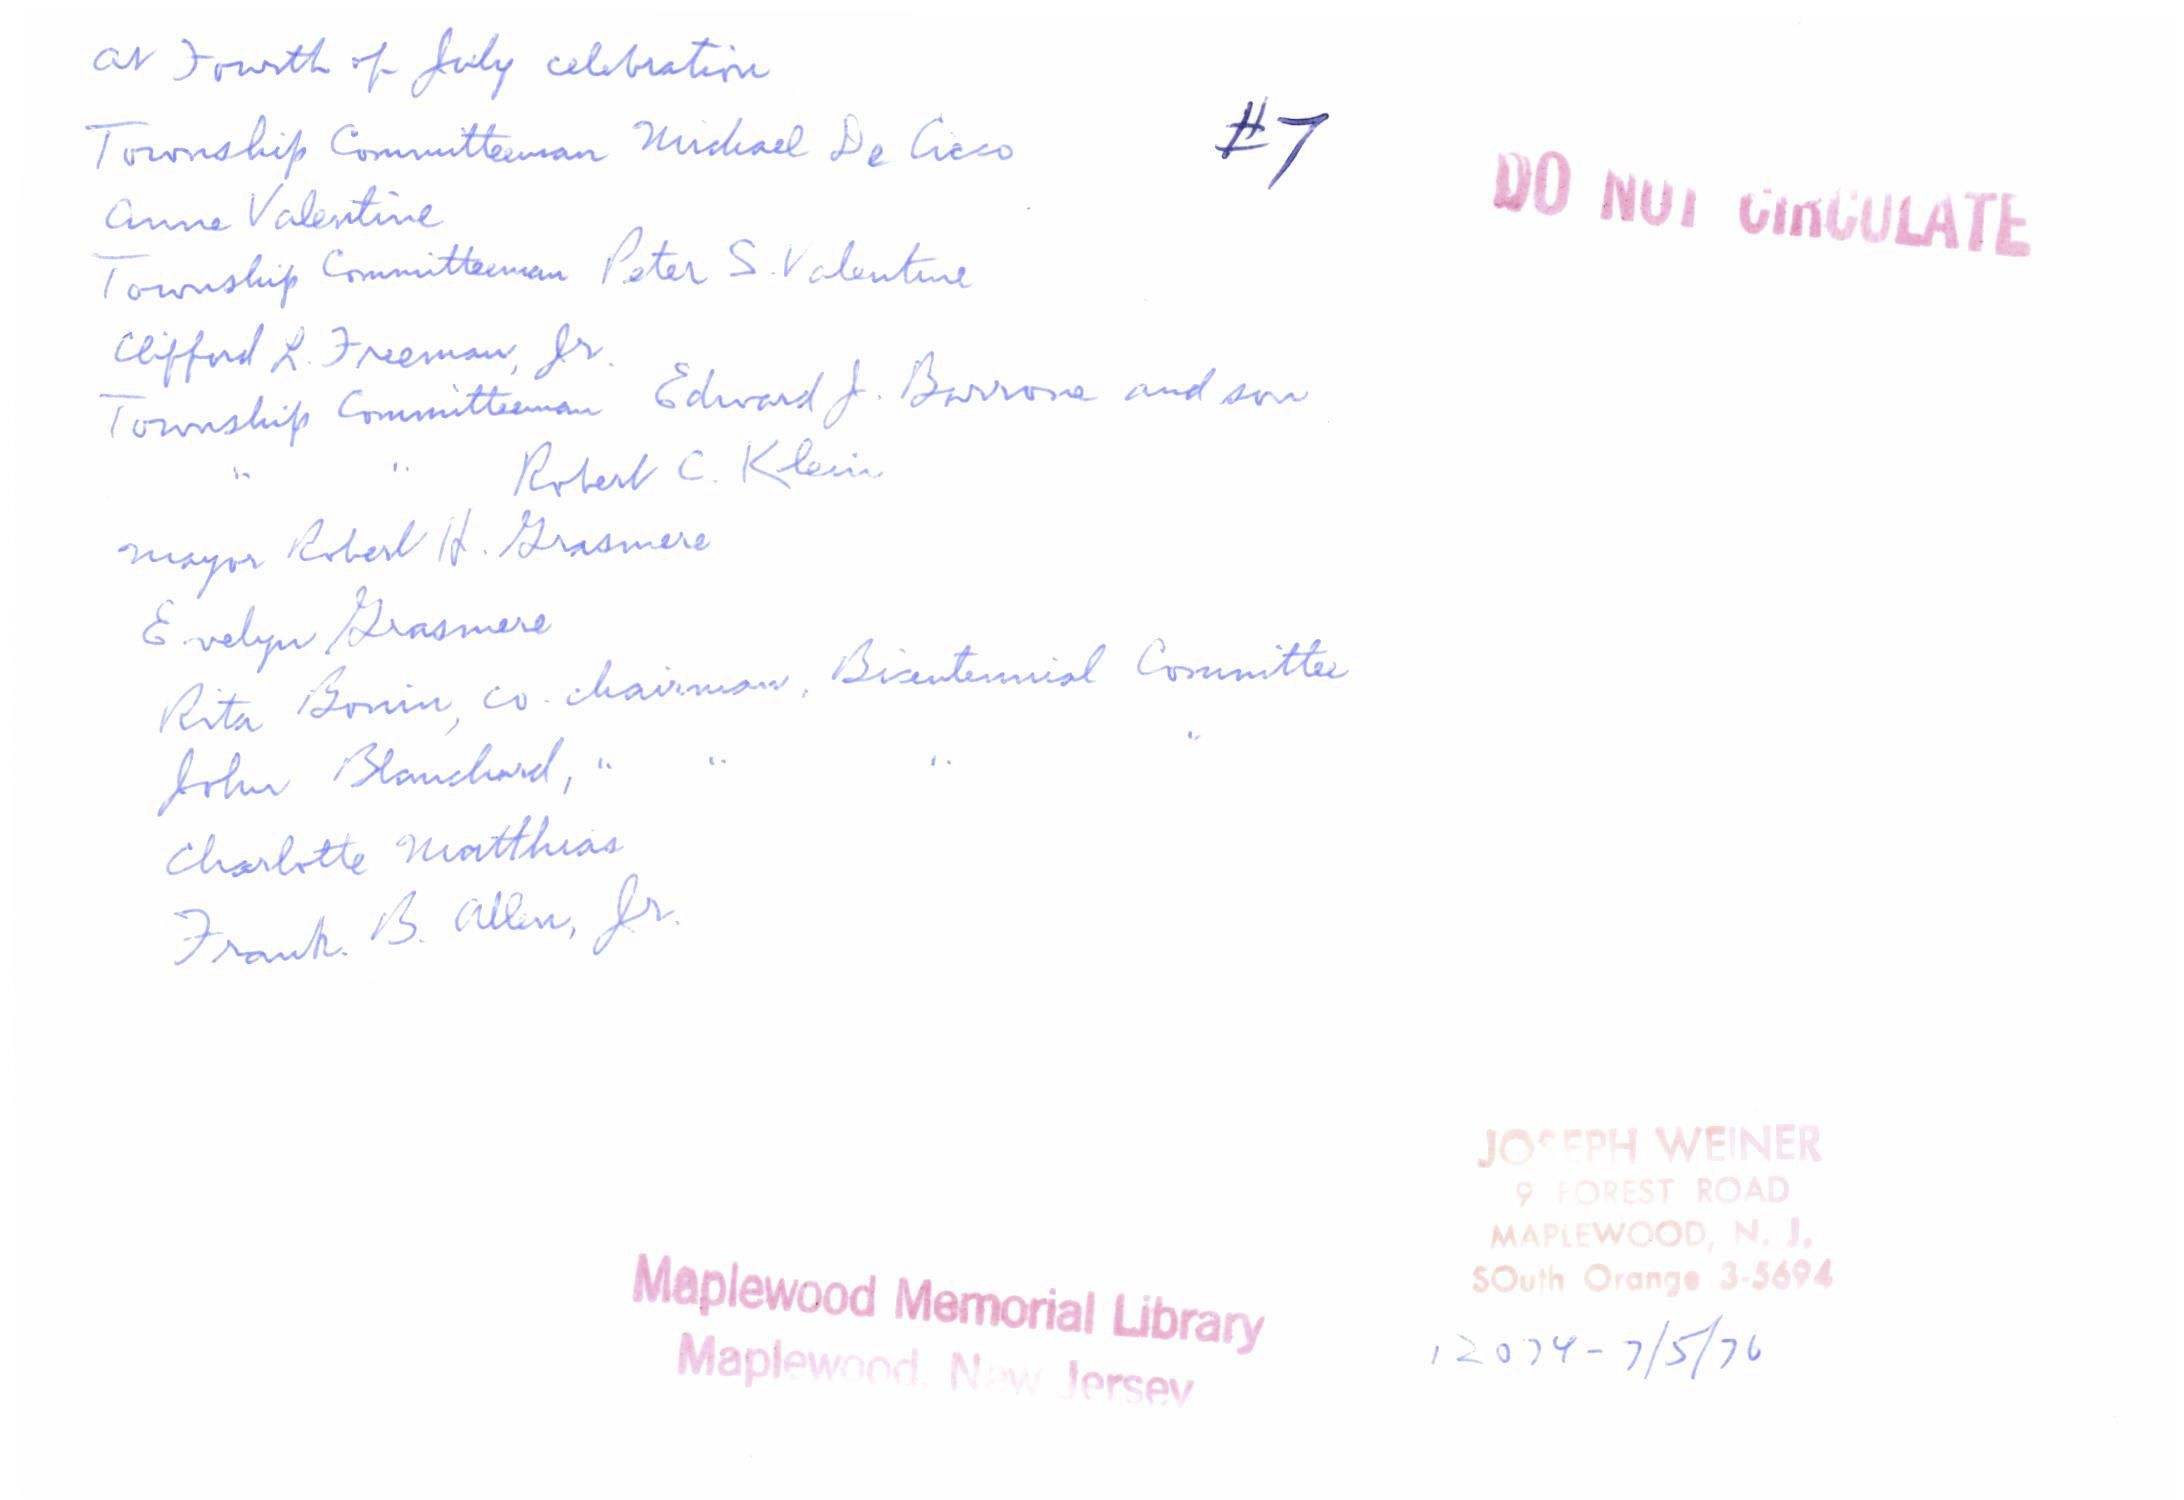 at Fourth of July celebration
Township Committeeman Michael De Cicco
Anne Valentine
Township Committeeman Peter S. Valentine
Clifford L. Freeman, Jr.
Township Committeeman Edward J. Borrone and son
" " Robert C. Klein
Mayor Robert H. Grasmere
Evelyn Grasmere
Rita Bonin, co-chairman, Bicentennial Committee
John Blanchard, " " " "
Charlotte Matthias
Frank B. Allen, Jr.
#7
DO NOT CIRCULATE
JOSEPH WEINER
9 FOREST ROAD
MAPLEWOOD, N. J.
SOuth Orange 3-5694
12074-7/5/76
Maplewood Memorial Library
Maplewood, New Jersey